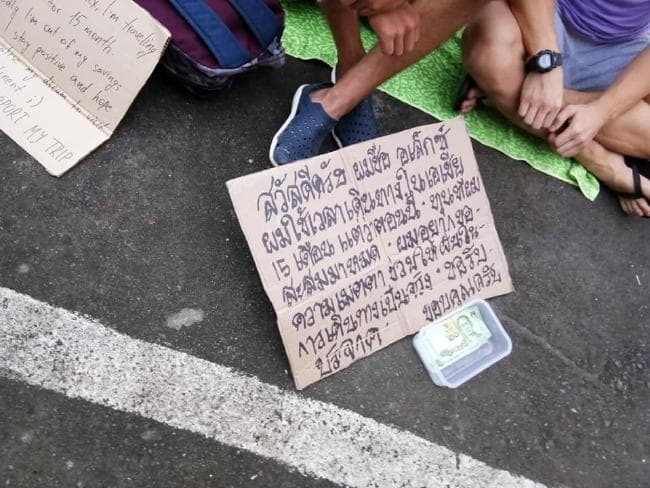 I'm traveling
for 15 month
I'm out of my savings
stay positive and hope
PORT MY TRIP
สวัสดีครับ ผมชื่อ อเล็กซ์
ผมใช้เวลาเดินทางในเอเชีย
15 เดือน แต่ว่าตอนนี้ ทุนที่ผม
สะสมมาหมด ผมอยากขอ
ความเมตตา ช่วยให้ฝันใน-
การเดินทางเป็นจริง ขอรับ
บริจาค ขอบคุณครับ
20